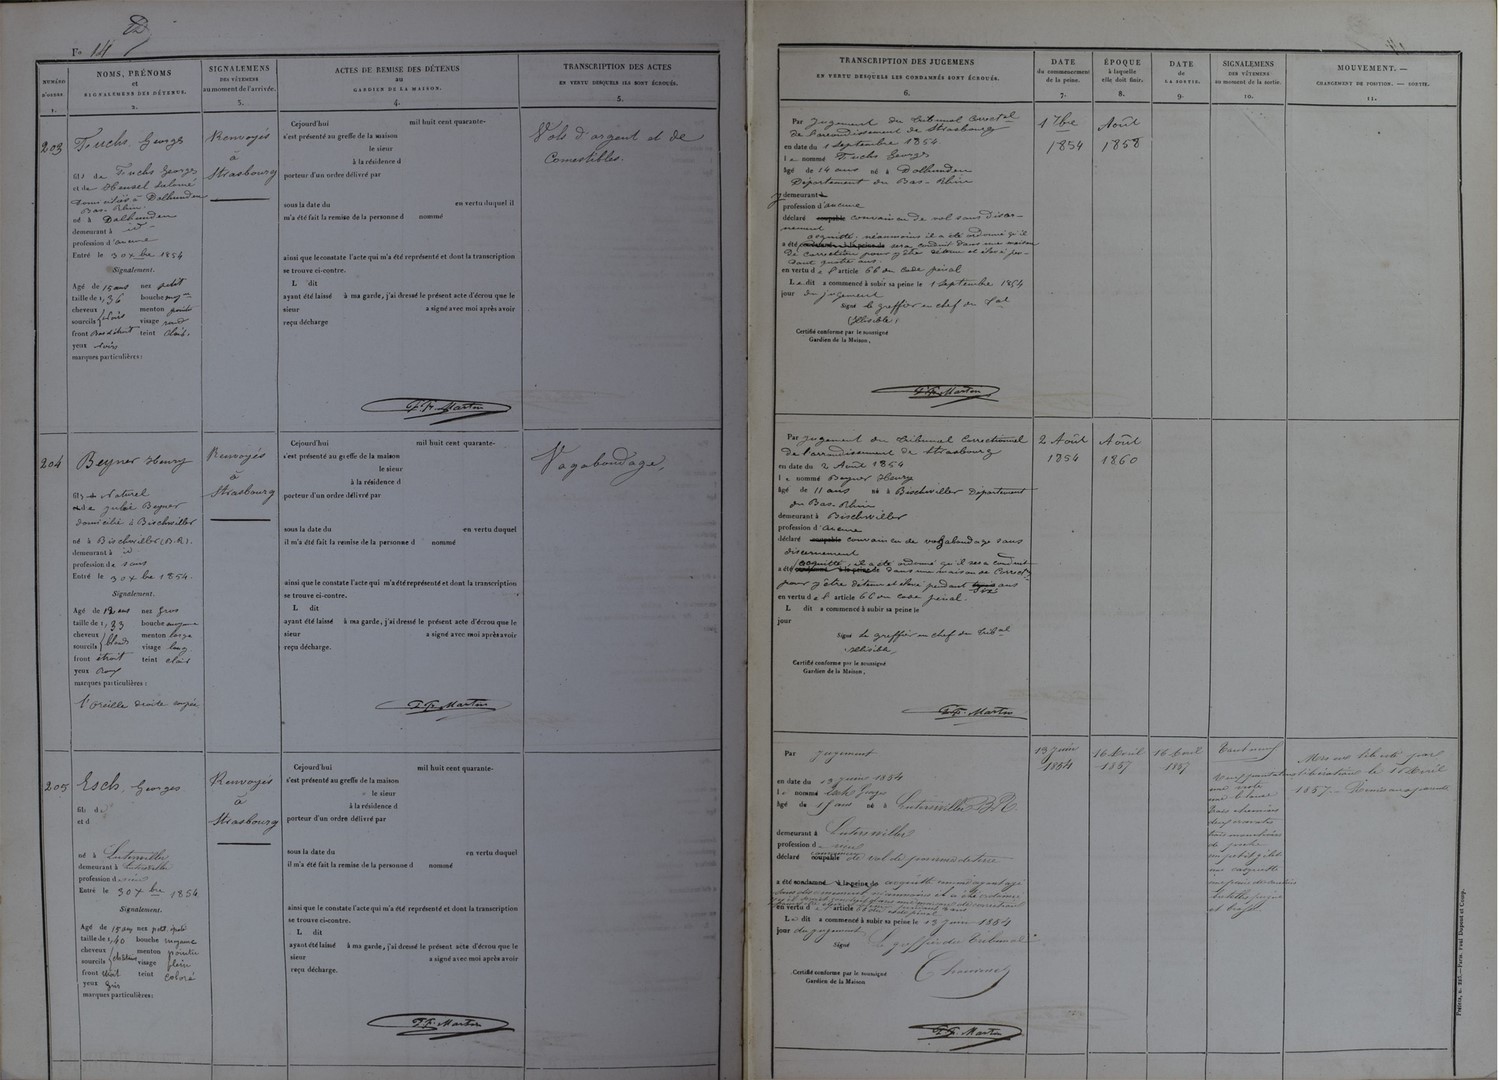 F° 14
NUMÉRO D'ORDRE
1.
NOMS, PRÉNOMS
et
SIGNALEMENS DES DÉTENUS.
2.
SIGNALEMENS
DES VÊTEMENS
au moment de l'arrivée.
3.
ACTES DE REMISE DES DÉTENUS
AU
GARDIEN DE LA MAISON.
4.
TRANSCRIPTION DES ACTES
EN VERTU DESQUELS ILS SONT ÉCROUÉS.
5.
TRANSCRIPTION DES JUGEMENS
EN VERTU DESQUELS LES CONDAMNÉS SONT ÉCROUÉS.
6.
DATE
du commencement
de la peine.
7.
ÉPOQUE
à laquelle
elle doit finir.
8.
DATE
de
LA SORTIE.
9.
SIGNALEMENS
DES VÊTEMENS
au moment de la sortie.
10.
MOUVEMENT. —
CHANGEMENT DE POSITION. — SORTIE.
11.
203
Fuchs. Georges
fils de Fuchs Georges
et de Hensel Salomé
domicilié à Dalhunden
Bas-Rhin.
né à Dalhunden
demeurant à id
profession d'aucune
Entré le 30 Xbre 1854
Signalement.
Agé de 15 ans nez petit
taille de 1,36 bouche moy
cheveux menton pointu
sourcils noirs visage rond
front teint clair.
yeux noirs
marques particulières :
Renvoyés
à
Strasbourg
Cejourd'hui mil huit cent quarante-
s'est présenté au greffe de la maison
le sieur
à la résidence d
porteur d'un ordre délivré par
sous la date du en vertu duquel il
m'a été fait la remise de la personne d nommé
ainsi que le constate l'acte qui m'a été représenté et dont la transcription
se trouve ci-contre.
L dit
ayant été laissé à ma garde, j'ai dressé le présent acte d'écrou que le
sieur a signé avec moi après avoir
reçu décharge
Martin
Vols d'argent et de
Comestibles.
Par Jugement du Tribunal Correctel
de l'arrondissement de Strasbourg
en date du 1 Septembre 1854
le nommé Fuchs Georges
âgé de 14 ans né à Dalhunden
Département du Bas-Rhin
demeurant
profession d'aucune
déclaré coupable convaincu de vol sans discer-
nement
acquitté, néanmoins il a été ordonné qu'il
a été condamné à la peine de sera conduit dans une maison
de correction pour y être détenu et élevé pen-
dant quatre ans.
en vertu de l'article 66 du Code pénal
Le dit a commencé à subir sa peine le 1 Septembre 1854
jour du jugement
Signé le greffier en chef du Tal
(illisible)
Certifié conforme par le soussigné
Gardien de la Maison,
Martin
1 7bre
1854
Août
1858
204
Beyner Henry
fils Naturel
de Julie Beyner
domicilié à Bischwiller
né à Bischwiller (B.R).
demeurant à id
profession de sans
Entré le 30 Xbre 1854.
Signalement.
Agé de 12 ans nez gros
taille de 1,33 bouche moyenne
cheveux menton large
sourcils blonds visage long
front étroit teint clair
yeux
marques particulières :
l'oreille droite coupée
Renvoyés
à
Strasbourg
Cejourd'hui mil huit cent quarante-
s'est présenté au greffe de la maison
le sieur
à la résidence d
porteur d'un ordre délivré par
sous la date du en vertu duquel
il m'a été fait la remise de la personne d nommé
ainsi que le constate l'acte qui m'a été représenté et dont la transcription
se trouve ci-contre.
L dit
ayant été laissé à ma garde, j'ai dressé le présent acte d'écrou que le
sieur a signé avec moi après avoir
reçu décharge.
Martin
Vagabondage,
Par Jugement du Tribunal Correctionnel
de l'arrondissement de Strasbourg
en date du 2 Août 1854
le nommé Beyner Henry
âgé de 11 ans né à Bischwiller Département
du Bas-Rhin
demeurant à Bischwiller
profession d'aucune
déclaré coupable convaincu de vagabondage sans
discernement
acquitté, il a été ordonné qu'il sera conduit
a été condamné à la peine de dans une maison de Correct
pour y être détenu et élevé pendant six ans
en vertu de l'article 66 du code pénal.
L dit a commencé à subir sa peine le
jour
Signé le greffier en chef du Tribal
illisible,
Certifié conforme par le soussigné
Gardien de la Maison,
Martin
2 Août
1854
Août
1860
205
Esch. Georges
fils de
et d
né à
demeurant à
profession d
Entré le 30 Xbre 1854
Signalement.
Agé de 15 ans nez petit,
taille de 1,40 bouche moyenne
cheveux menton pointu
sourcils châtains visage plein
front étroit teint coloré
yeux gris
marques particulières :
Renvoyés
à
Strasbourg
Cejourd'hui mil huit cent quarante-
s'est présenté au greffe de la maison
le sieur
à la résidence d
porteur d'un ordre délivré par
sous la date du en vertu duquel
il m'a été fait la remise de la personne d nommé
ainsi que le constate l'acte qui m'a été représenté et dont la transcription
se trouve ci-contre.
L dit
ayant été laissé à ma garde, j'ai dressé le présent acte d'écrou que le
sieur a signé avec moi après avoir
reçu décharge.
Martin
Par Jugement
en date du 13 juin 1854
le nommé Esch Georges
âgé de 15 ans né à B R
demeurant à
profession d
déclaré coupable convaincu de vol de pommes de terre
a été condamné à la peine de acquitté comme ayant agi
sans discernement néanmoins il a été ordonné
qu'il serait conduit dans une maison de correction
en vertu d article 66 du code pénal
Le dit a commencé à subir sa peine le 13 juin 1854
jour du jugement
Signé le greffier du tribunal
Certifié conforme par le soussigné
Gardien de la Maison
Martin
13 juin
1854
16 Avril
1857
16 Avril
1857
un pantalon
une veste
une blouse
trois chemises
deux cravates
trois mouchoirs
de poche
un petit gilet
une casquette
Mis en liberté par
libération le 16 Avril
1857.
Poissy, E. 227. — Paris. Paul Dupont et Comp.